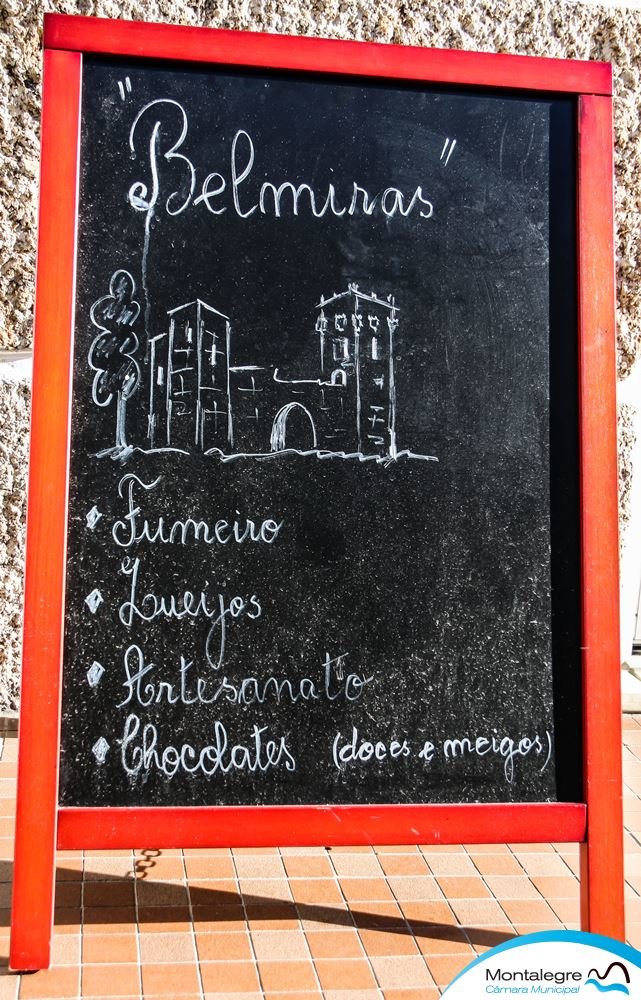 "Belmiras"
Fumeiro
Queijos
Artesanato
Chocolates (doces e meigos)
Montalegre
Câmara Municipal